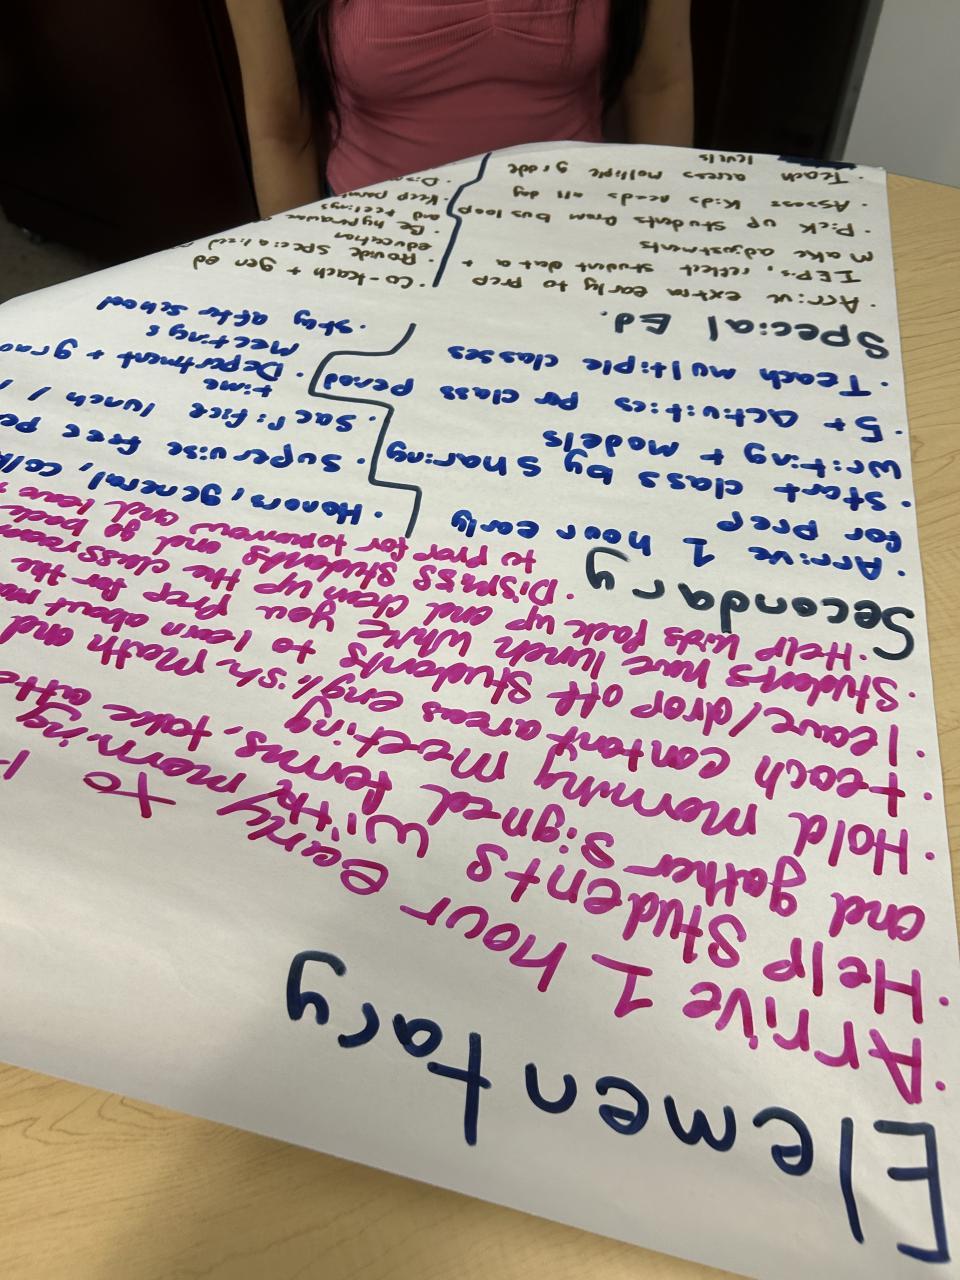 Elementary
• Arrive 1 hour early to
• Help students with morning
and gather signed forms, take
• Hold morning meeting
• teach content areas english math and
• leave/drop off students to learn about
• Students have lunch while you prep for the
• Help kids pack up and clean up the classroom
• Dismiss students and go back
to prep for tomorrow and leave
Secondary
• Arrive 1 hour early
for prep
• Start class by sharing
writing + models
• 5+ Activities per class period
• Teach multiple classes
• Honors, general,
• Supervise free
• Sacrifice lunch /
time
• Department +
meetings
• Stay after school
Special Ed.
• Arrive extra early to prep
IEPs, reflect student data +
make adjustments
• Pick up students from bus loop
• Assess kids needs all day
• Teach across multiple grade
levels
• Co-teach + gen ed
• Provide specialized
education
• Be hyperaware
and feelings
• Keep